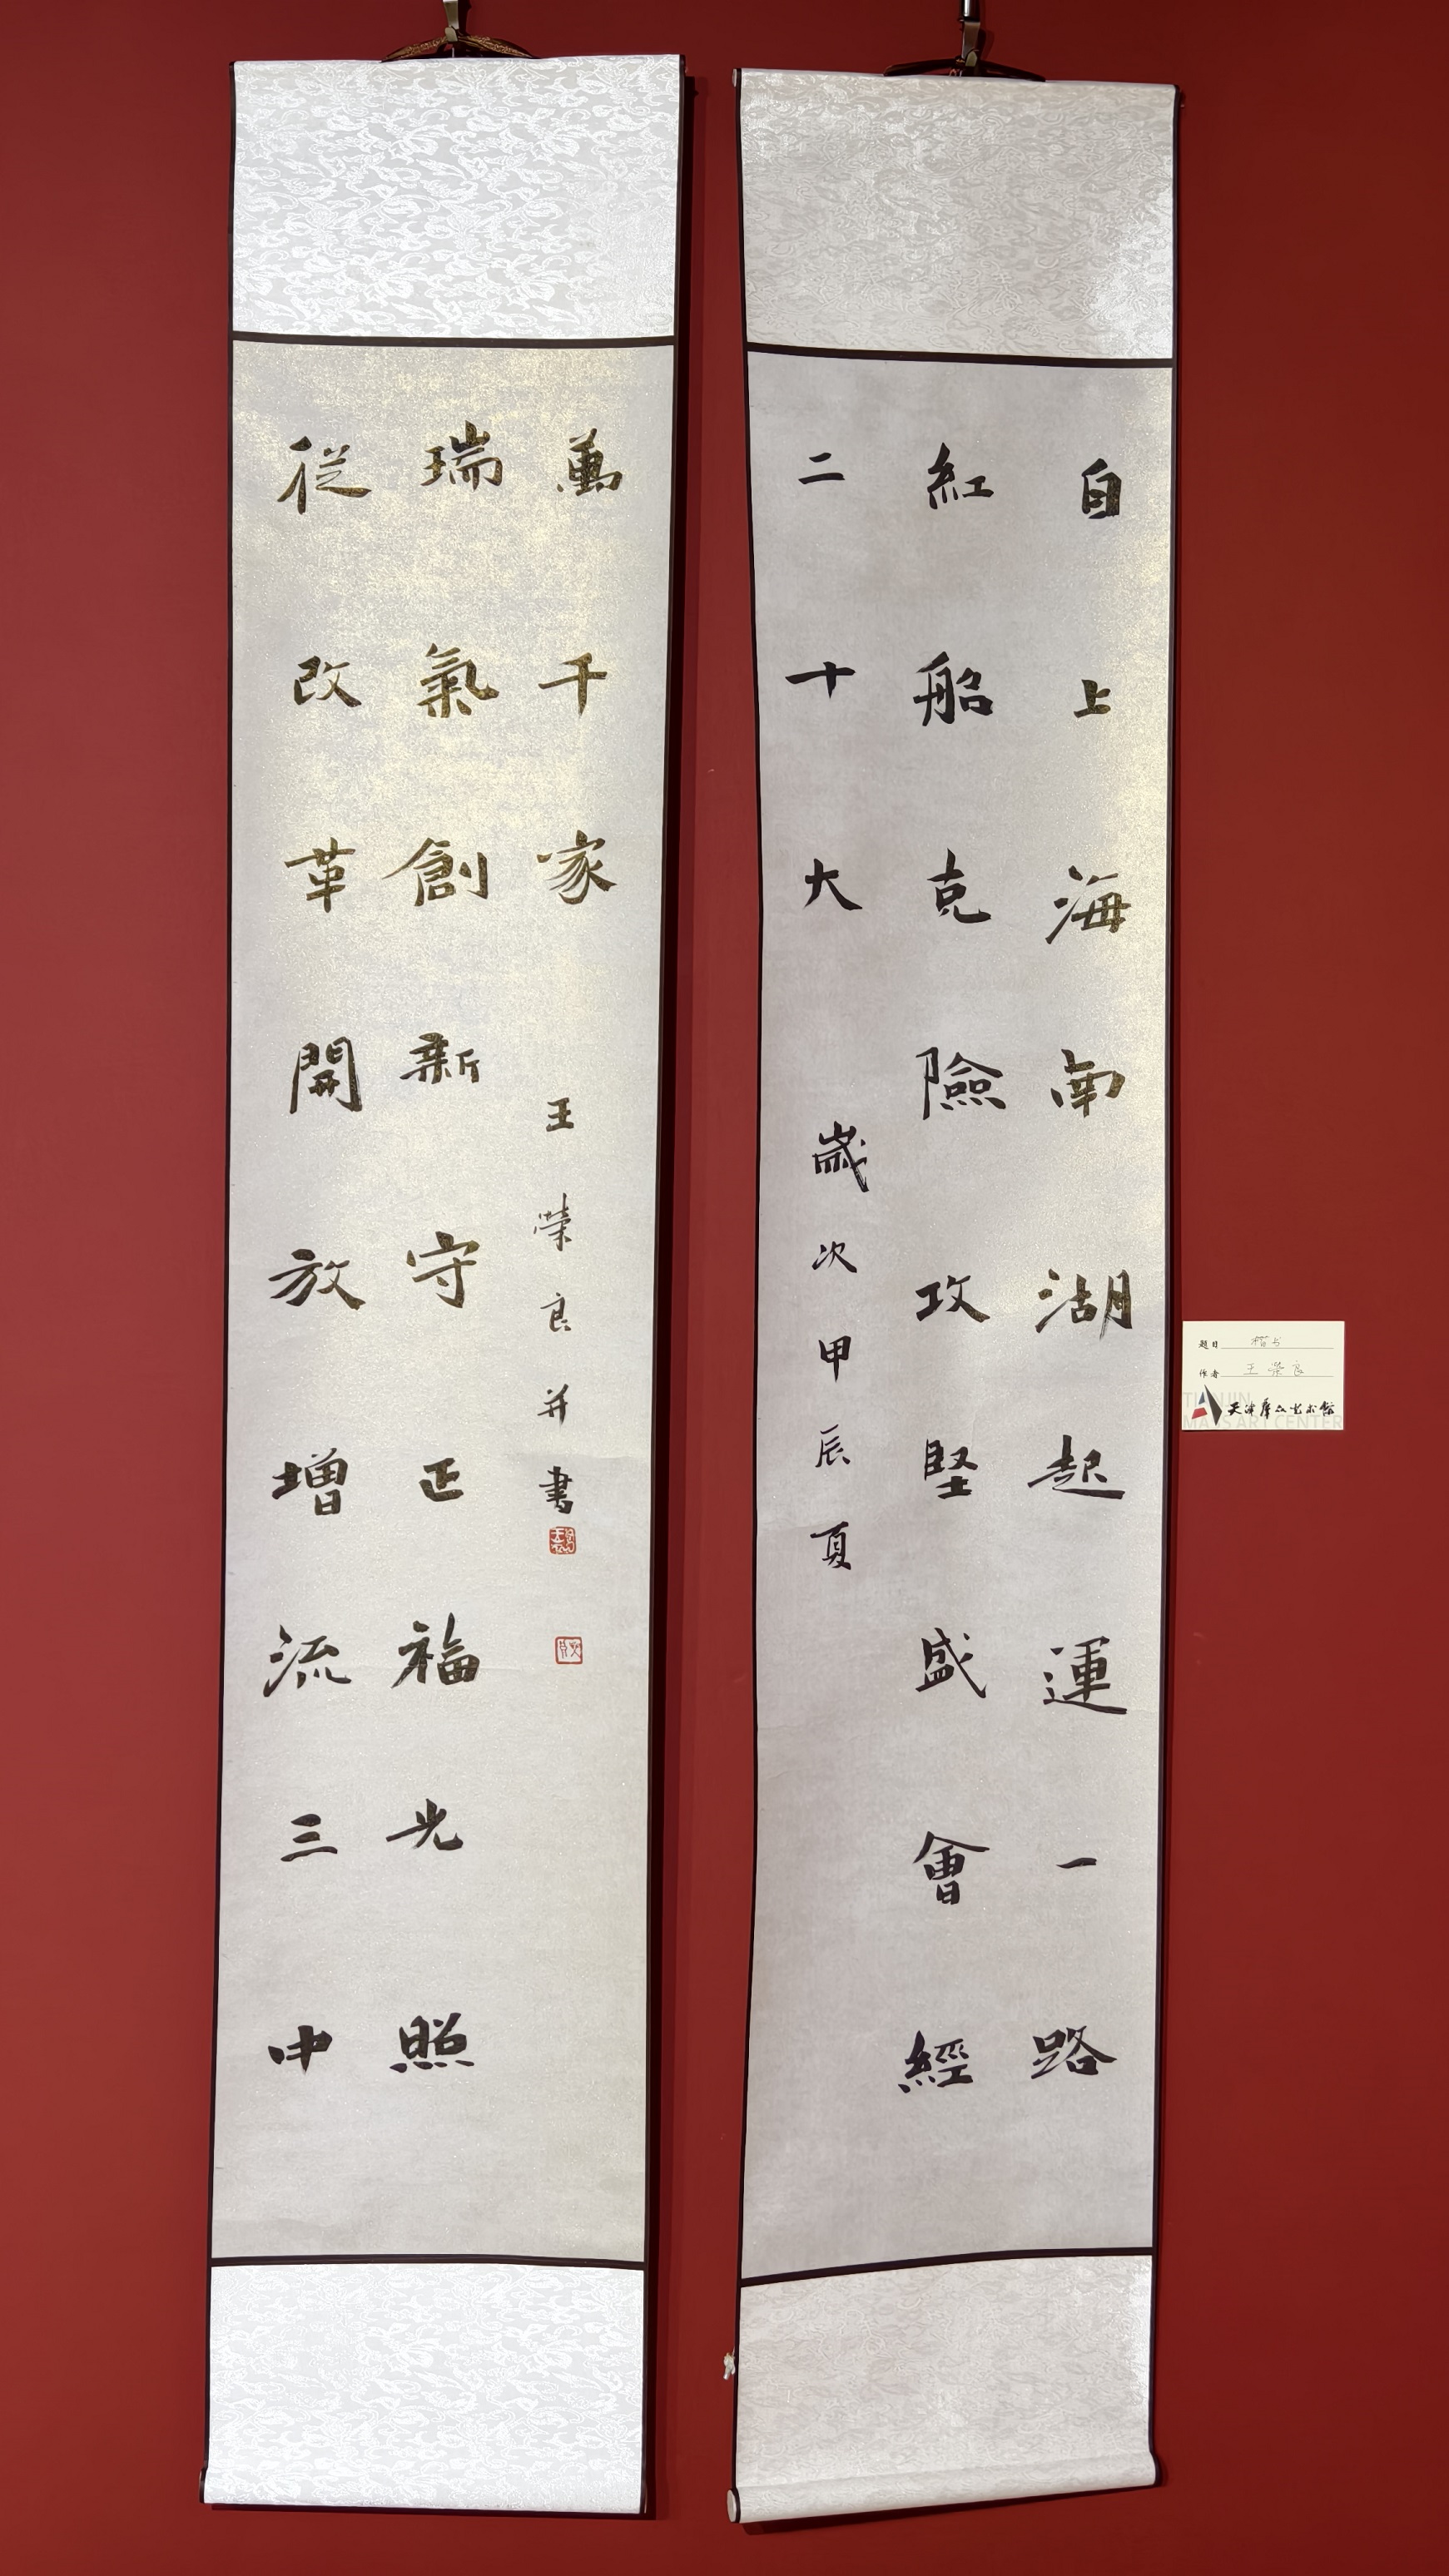 自上海南湖起運一路
紅船克險攻堅盛會經
二十大
歲次甲辰夏
從改革開放增流三中
瑞氣創新守正福光照
萬千家
王榮良并書
题目 楷书
作者 王荣良
天津群众艺术馆
TIANJIN
MASS ART CENTER